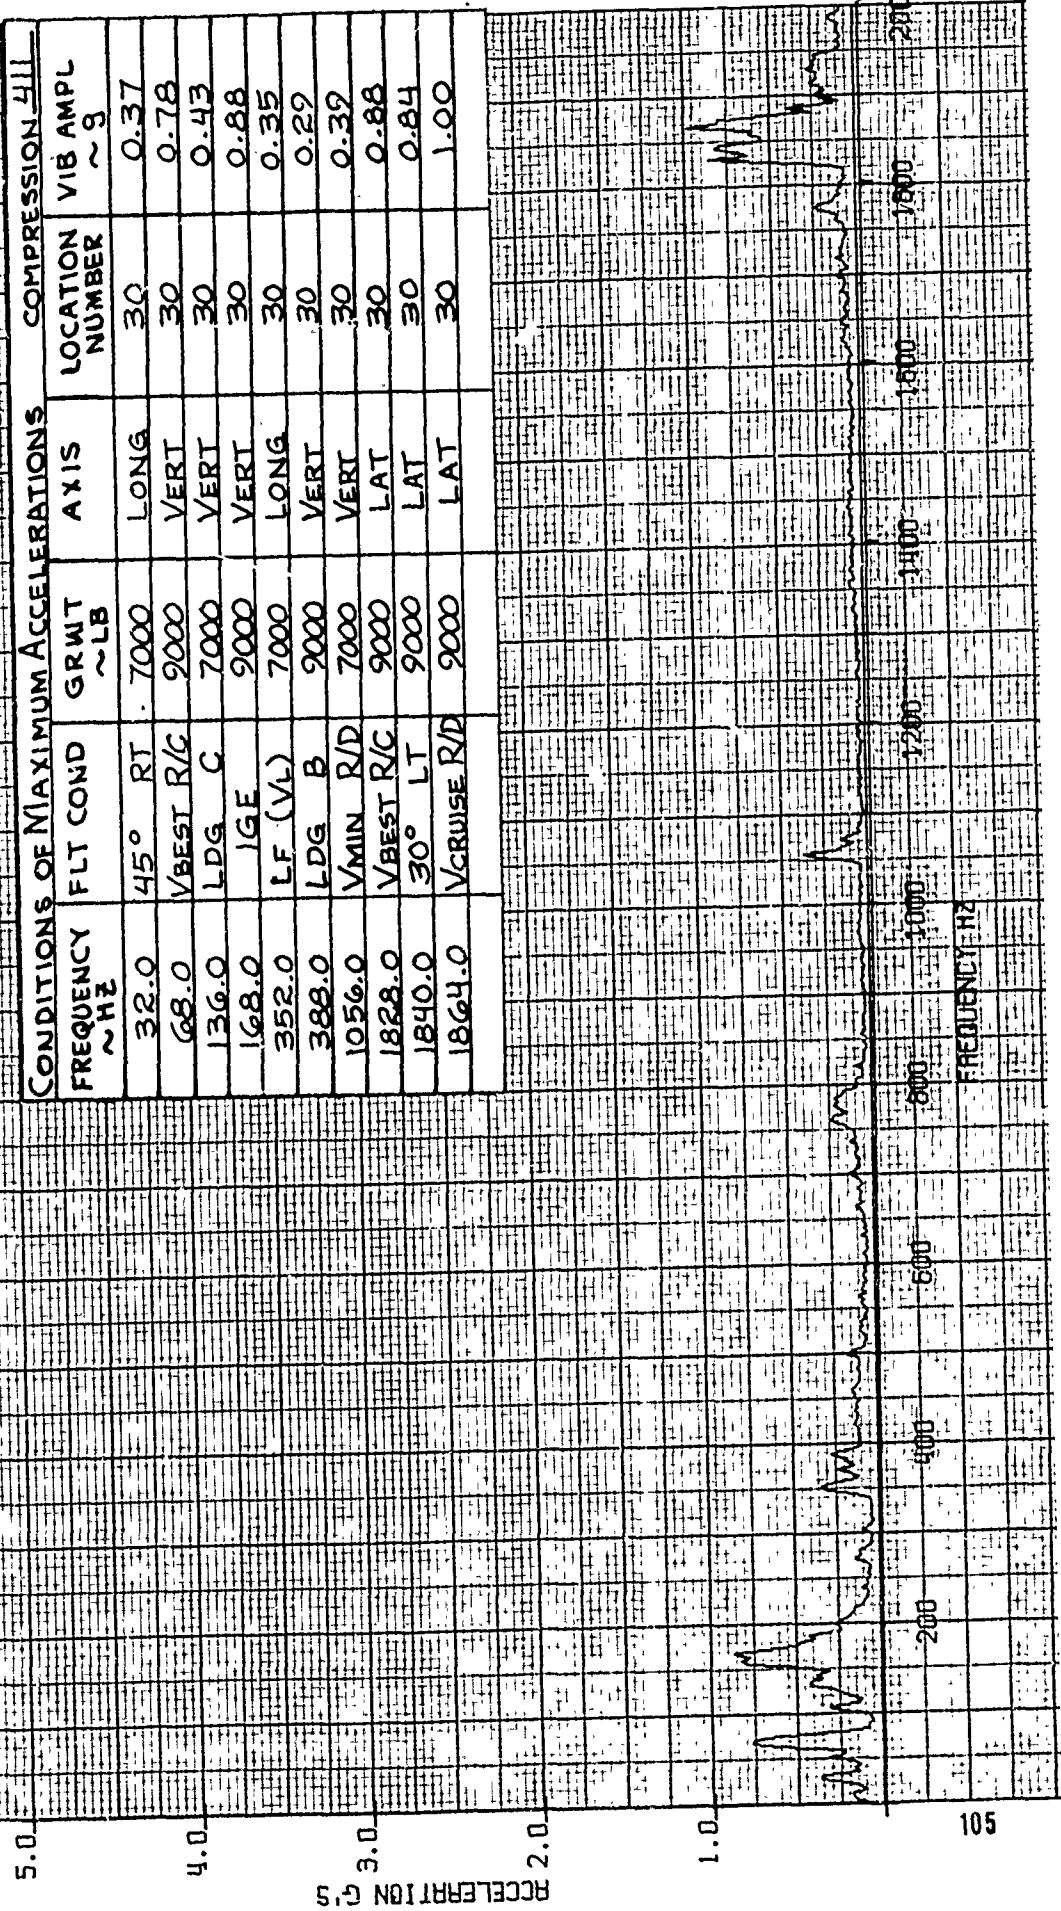 CONDITIONS OF MAXIMUM ACCELERATIONS COMPRESSION 411
FREQUENCY ~HZ FLT COND GRWT ~LB AXIS LOCATION NUMBER VIB AMPL ~g
32.0 45° RT 7000 LONG 30 0.37
68.0 VBEST R/C 9000 VERT 30 0.78
136.0 LDG C 7000 VERT 30 0.43
168.0 IGE 9000 VERT 30 0.88
352.0 LF (VL) 7000 LONG 30 0.35
388.0 LDG B 9000 VERT 30 0.29
1056.0 VMIN R/D 7000 VERT 30 0.39
1828.0 VBEST R/C 9000 LAT 30 0.88
1840.0 30° LT 9000 LAT 30 0.84
1864.0 VCRUISE R/D 9000 LAT 30 1.00
5.0
4.0
3.0
2.0
1.0
ACCELERATION G'S
200 400 600 800 1000 1200 1400 1600 1800 200
FREQUENCY HZ
105